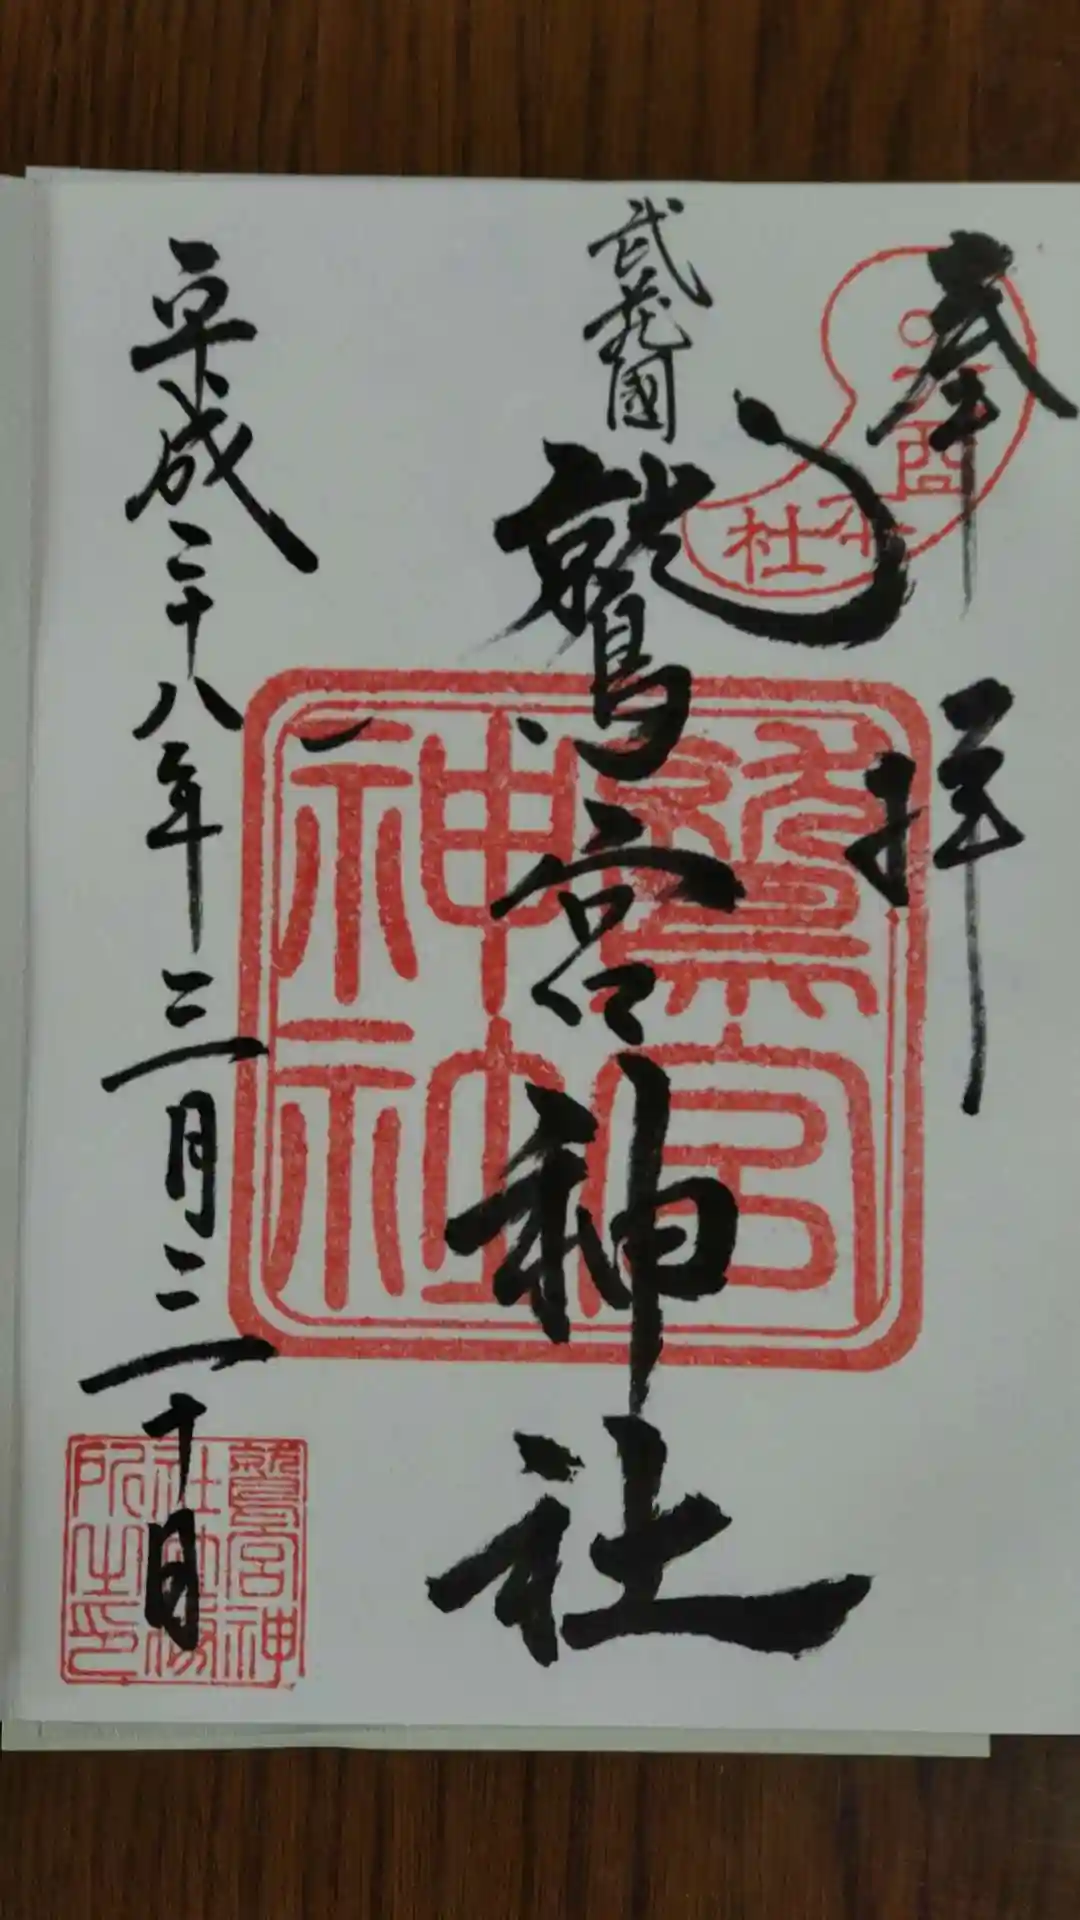 奉拝
大酉本社
武蔵國
鷲宮神社
鷲宮神社
平成二十八年三月三十日
鷲宮神社社務所之印